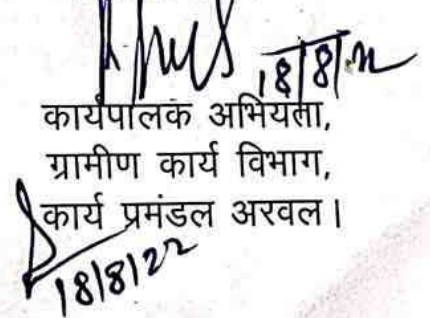 18/8/22
कार्यपालक अभियंता,
ग्रामीण कार्य विभाग,
कार्य प्रमंडल अरवल।
18/8/22